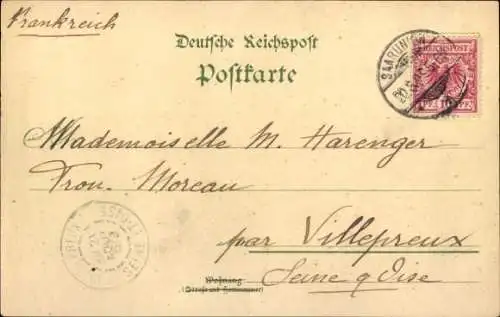 Frankreich
Deutsche Reichspost
Postkarte
SAARUNION
REICHSPOST
Mademoiselle M. Harenger
Trou. Moreau
par Villepreux
Wohnung
Seine & Oise